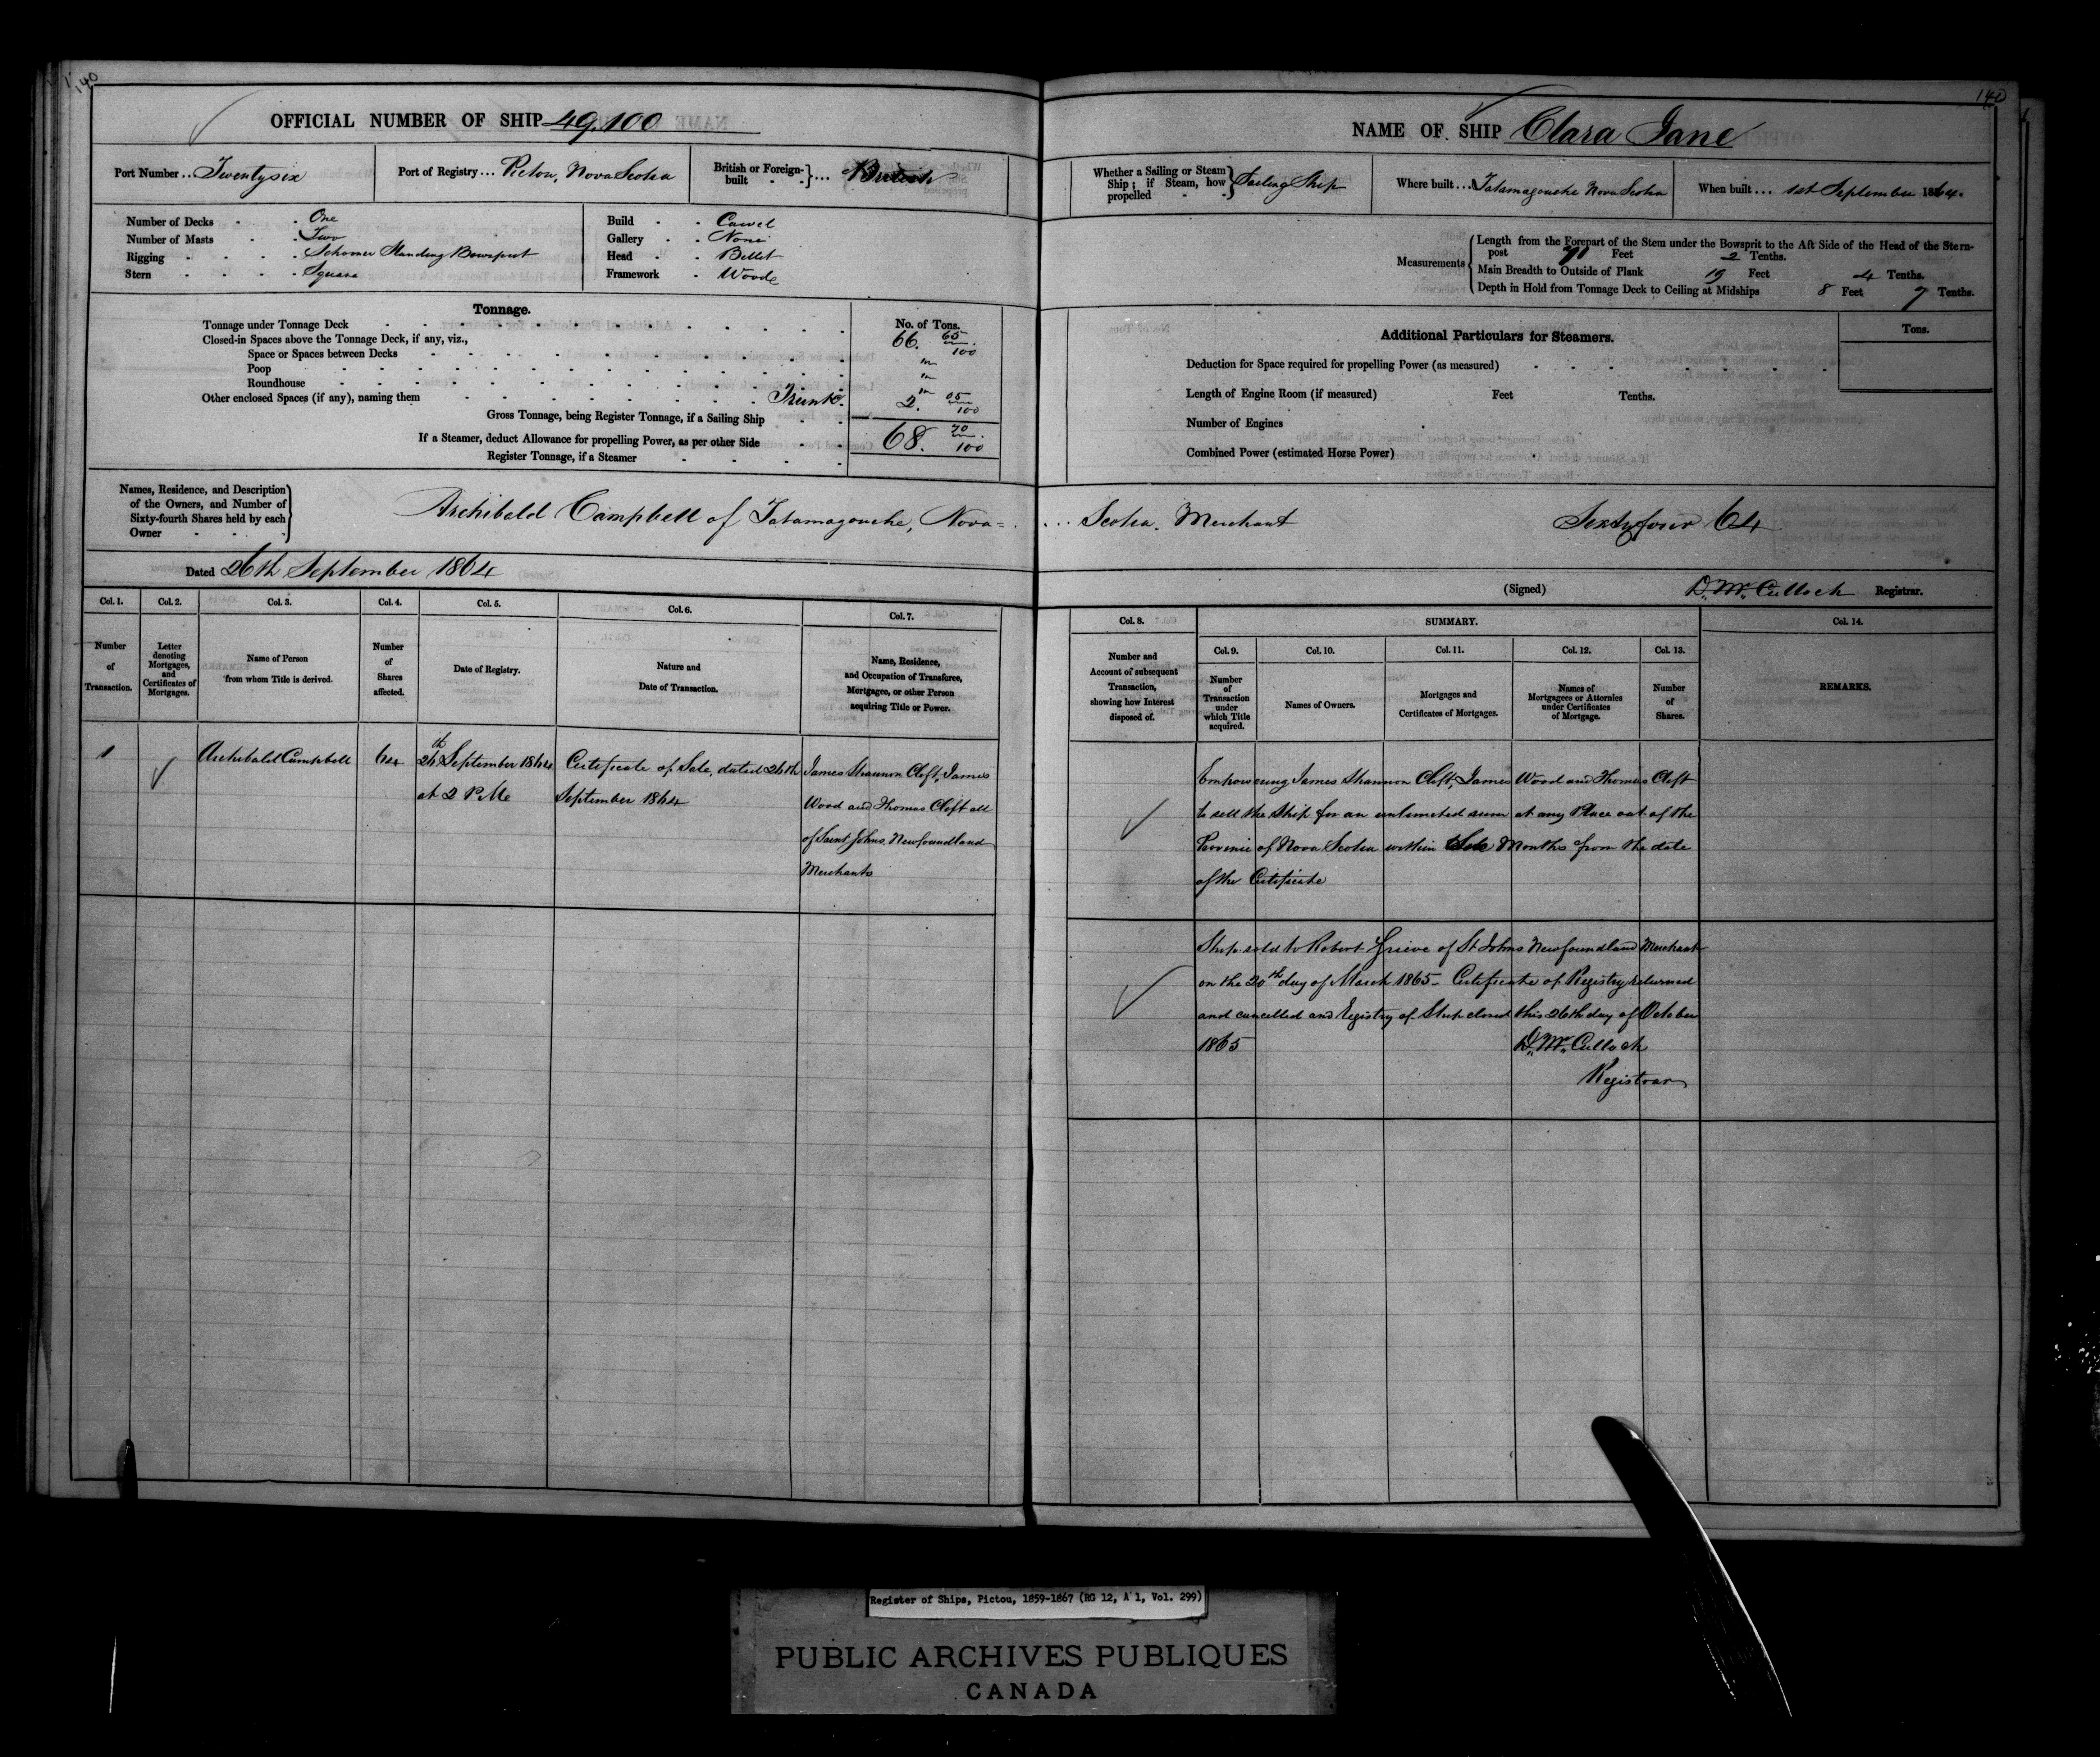 140
OFFICIAL NUMBER OF SHIP 49,100
Port Number .. Twentysix
Port of Registry ... Pictou, Nova Scotia
British or Foreign-built } ... British
Number of Decks - - One
Number of Masts - - Two
Rigging - - - Schoner Standing Bowsprit
Stern - - - - Square
Build - - Carvel
Gallery - - None
Head - - Billet
Framework - Woode
Tonnage.
No. of Tons.
Tonnage under Tonnage Deck 66. 65/100
Closed-in Spaces above the Tonnage Deck, if any, viz.,
Space or Spaces between Decks "
Poop "
Roundhouse "
Other enclosed Spaces (if any), naming them Trunk 2. 05/100
Gross Tonnage, being Register Tonnage, if a Sailing Ship 68. 70/100
If a Steamer, deduct Allowance for propelling Power, as per other Side
Register Tonnage, if a Steamer
Names, Residence, and Description of the Owners, and Number of Sixty-fourth Shares held by each Owner
Archibald Campbell of Tatamagouche, Nova=
Dated 26th September 1864
Col. 1. Col. 2. Col. 3. Col. 4. Col. 5. Col. 6. Col. 7.
Number of Transaction.
Letter denoting Mortgages, and Certificates of Mortgages.
Name of Person from whom Title is derived.
Number of Shares affected.
Date of Registry.
Nature and Date of Transaction.
Name, Residence, and Occupation of Transferee, Mortgagee, or other Person acquiring Title or Power.
1
Archibald Campbell
64
26th September 1864
at 2 P Me
Certificate of Sale, dated 26th
September 1864
James Shannon Clift, James
Wood and Thomas Clift all
of Saint Johns, Newfoundland
Merchants
140
NAME OF SHIP Clara Jane
Whether a Sailing or Steam Ship; if Steam, how propelled } Sailing Ship
Where built ... Tatamagouche Nova Scotia
When built ... 1st September 1864.
Measurements
Length from the Forepart of the Stem under the Bowsprit to the Aft Side of the Head of the Stern-
post 71 Feet 2 Tenths.
Main Breadth to Outside of Plank 19 Feet 4 Tenths.
Depth in Hold from Tonnage Deck to Ceiling at Midships 8 Feet 7 Tenths.
Additional Particulars for Steamers.
Tons.
Deduction for Space required for propelling Power (as measured)
Length of Engine Room (if measured) Feet Tenths.
Number of Engines
Combined Power (estimated Horse Power)
... Scotia. Merchant Sixtyfour 64
(Signed) D. Mc. Culloch Registrar.
Col. 8. SUMMARY. Col. 14.
Col. 9. Col. 10. Col. 11. Col. 12. Col. 13.
Number and Account of subsequent Transaction, showing how Interest disposed of.
Number of Transaction under which Title acquired.
Names of Owners.
Mortgages and Certificates of Mortgages.
Names of Mortgagees or Attornies under Certificates of Mortgage.
Number of Shares.
REMARKS.
Empowering James Shannon Clift, James Wood and Thomas Clift
to sell the Ship for an unlimited sum at any Place out of the
Province of Nova Scotia within Months from the date
of the Certificate
Ship sold to Robert Grieve of St Johns Newfoundland Merchant
on the 20th day of March 1865 - Certificate of Registry returned
and cancelled and Registry of Ship closed this 26th day of October
1865 D. Mc. Culloch
Registrar
Register of Ships, Pictou, 1859-1867 (RG 12, A 1, Vol. 299)
PUBLIC ARCHIVES PUBLIQUES
CANADA